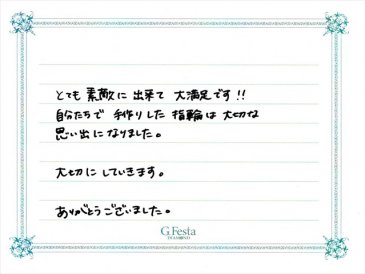 とても素敵に出来て大満足です!!
自分たちで手作りした指輪は大切な
思い出になりました。
大切にしていきます。
ありがとうございました。
G.Festa
DIAMOND